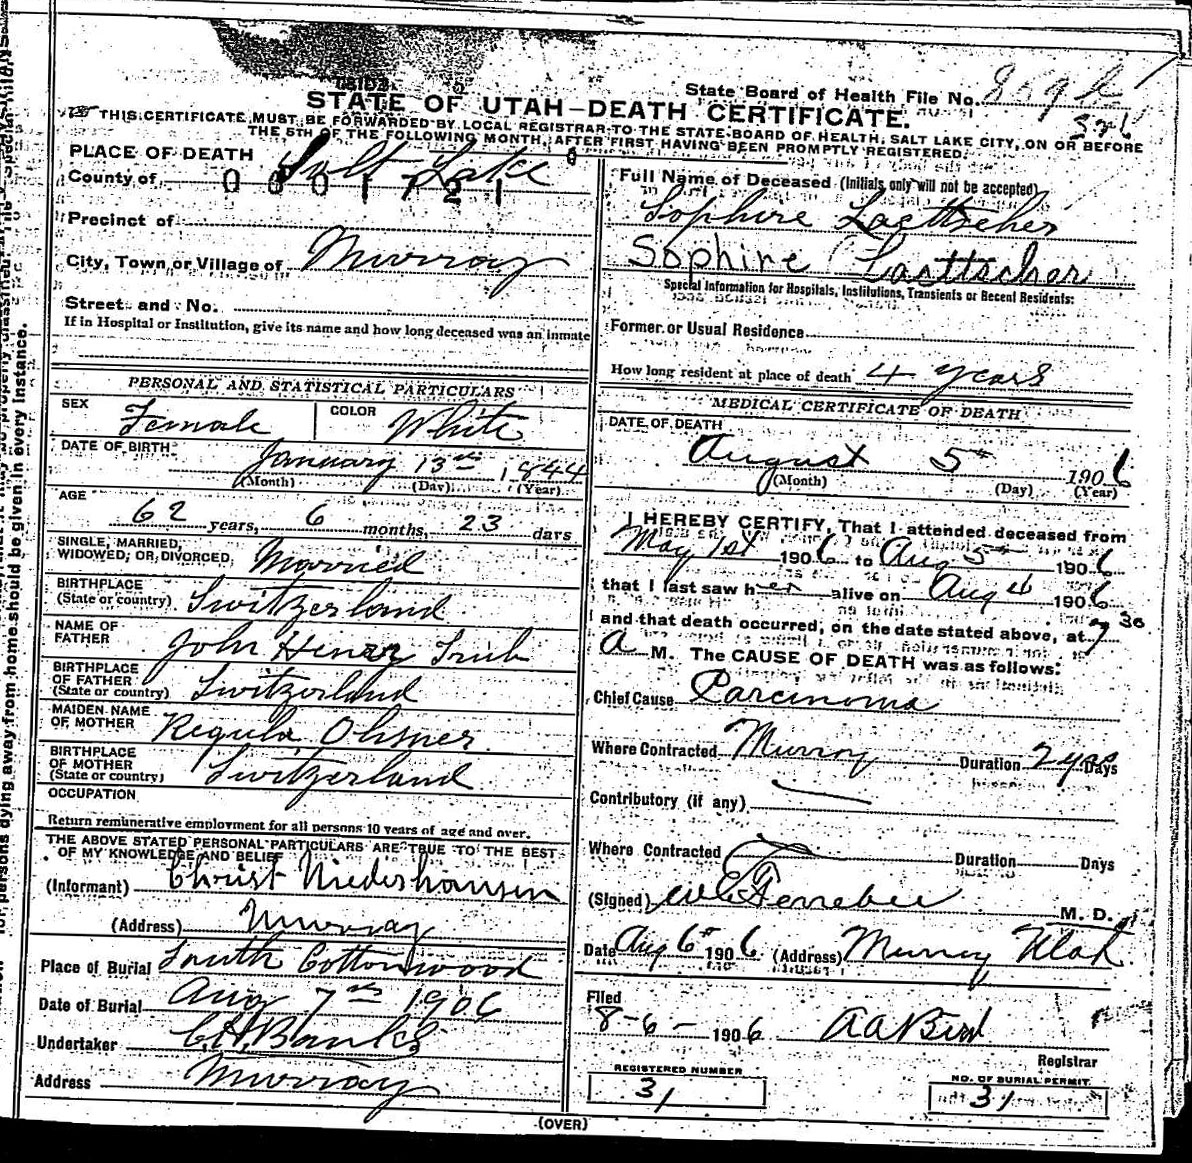 State Board of Health File No.
STATE OF UTAH—DEATH CERTIFICATE.
THIS CERTIFICATE MUST BE FORWARDED BY LOCAL REGISTRAR TO THE STATE BOARD OF HEALTH, SALT LAKE CITY, ON OR BEFORE
THE 5TH OF THE FOLLOWING MONTH, AFTER FIRST HAVING BEEN PROMPTLY REGISTERED.
PLACE OF DEATH
County of Salt Lake
0601721
Precinct of
City, Town or Village of Murray
Street and No.
If in Hospital or Institution, give its name and how long deceased was an inmate
PERSONAL AND STATISTICAL PARTICULARS
SEX Female COLOR White
DATE OF BIRTH January 13th 1844
(Month) (Day) (Year)
AGE 62 years, 6 months, 23 days
SINGLE, MARRIED, WIDOWED, OR DIVORCED, Married
BIRTHPLACE
(State or country) Switzerland
NAME OF FATHER John Henry Trub
BIRTHPLACE OF FATHER
(State or country) Switzerland
MAIDEN NAME OF MOTHER Regula Ohsner
BIRTHPLACE OF MOTHER
(State or country) Switzerland
OCCUPATION
Return remunerative employment for all persons 10 years of age and over.
THE ABOVE STATED PERSONAL PARTICULARS ARE TRUE TO THE BEST
OF MY KNOWLEDGE AND BELIEF
(Informant) Christ Niederhausen
(Address) Murray
Place of Burial South Cottonwood
Date of Burial Aug 7th 1906
Undertaker C.H. Banks
Address Murray
Full Name of Deceased (Initials only will not be accepted)
Sophire Laettscher
Sophire Laettscher
Special Information for Hospitals, Institutions, Transients or Recent Residents:
Former or Usual Residence
How long resident at place of death 4 years
MEDICAL CERTIFICATE OF DEATH
DATE OF DEATH
August 5th 1906
(Month) (Day) (Year)
I HEREBY CERTIFY, That I attended deceased from
May 1st 1906 to Aug 5th 1906
that I last saw her alive on Aug 4 1906
and that death occurred, on the date stated above, at 7 30
A M. The CAUSE OF DEATH was as follows:
Chief Cause Carcinoma
Where Contracted Murray Duration 2 yrs Days
Contributory (if any)
Where Contracted Duration Days
(Signed) W C Ferrebee M. D.
Date Aug 6th 1906 (Address) Murray Utah
Filed
8-6- 1906 A A Bird
Registrar
REGISTERED NUMBER
31
NO. OF BURIAL PERMIT.
31
(OVER)